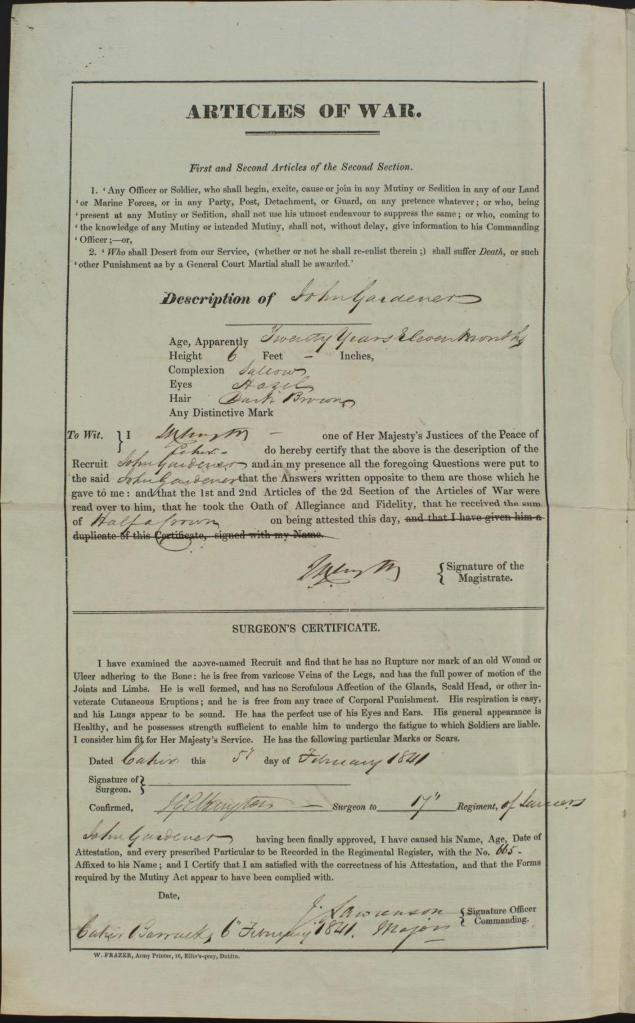 ARTICLES OF WAR.
First and Second Articles of the Second Section.
1. ‘Any Officer or Soldier, who shall begin, excite, cause or join in any Mutiny or Sedition in any of our Land
‘or Marine Forces, or in any Party, Post, Detachment, or Guard, on any pretence whatever; or who, being
‘present at any Mutiny or Sedition, shall not use his utmost endeavour to suppress the same; or who, coming to
‘the knowledge of any Mutiny or intended Mutiny, shall not, without delay, give information to his Commanding
‘Officer;—or,
2. ‘Who shall Desert from our Service, (whether or not he shall re-enlist therein;) shall suffer Death, or such
‘other Punishment as by a General Court Martial shall be awarded.’
Description of John Gardener
Age, Apparently Twenty Years Eleven Months
Height 6 Feet – Inches,
Complexion Sallow
Eyes Hazel
Hair Dark Brown
Any Distinctive Mark
To Wit. } I one of Her Majesty's Justices of the Peace of
Caher do hereby certify that the above is the description of the
Recruit John Gardener and in my presence all the foregoing Questions were put to
the said John Gardener that the Answers written opposite to them are those which he
gave to me: and that the 1st and 2nd Articles of the 2d Section of the Articles of War were
read over to him, that he took the Oath of Allegiance and Fidelity, that he received the sum
of Half a Crown on being attested this day, and that I have given him a
duplicate of this Certificate, signed with my Name.
{ Signature of the
Magistrate.
SURGEON'S CERTIFICATE.
I have examined the above-named Recruit and find that he has no Rupture nor mark of an old Wound or
Ulcer adhering to the Bone: he is free from varicose Veins of the Legs, and has the full power of motion of the
Joints and Limbs. He is well formed, and has no Scrofulous Affection of the Glands, Scald Head, or other in-
veterate Cutaneous Eruptions; and he is free from any trace of Corporal Punishment. His respiration is easy,
and his Lungs appear to be sound. He has the perfect use of his Eyes and Ears. His general appearance is
Healthy, and he possesses strength sufficient to enable him to undergo the fatigue to which Soldiers are liable.
I consider him fit for Her Majesty's Service. He has the following particular Marks or Scars.
Dated Caher this 5th day of February 1841
Signature of }
Surgeon.
Confirmed, Surgeon to 17th Regiment, of Lancers
John Gardener having been finally approved, I have caused his Name, Age, Date of
Attestation, and every prescribed Particular to be Recorded in the Regimental Register, with the No. 665 -
Affixed to his Name; and I Certify that I am satisfied with the correctness of his Attestation, and that the Forms
required by the Mutiny Act appear to have been complied with.
Date,
J. Lawrenson { Signature Officer
Commanding.
Caher Barracks 6th February 1841. Major
W. FRAZER, Army Printer, 16, Ellis's-quay, Dublin.